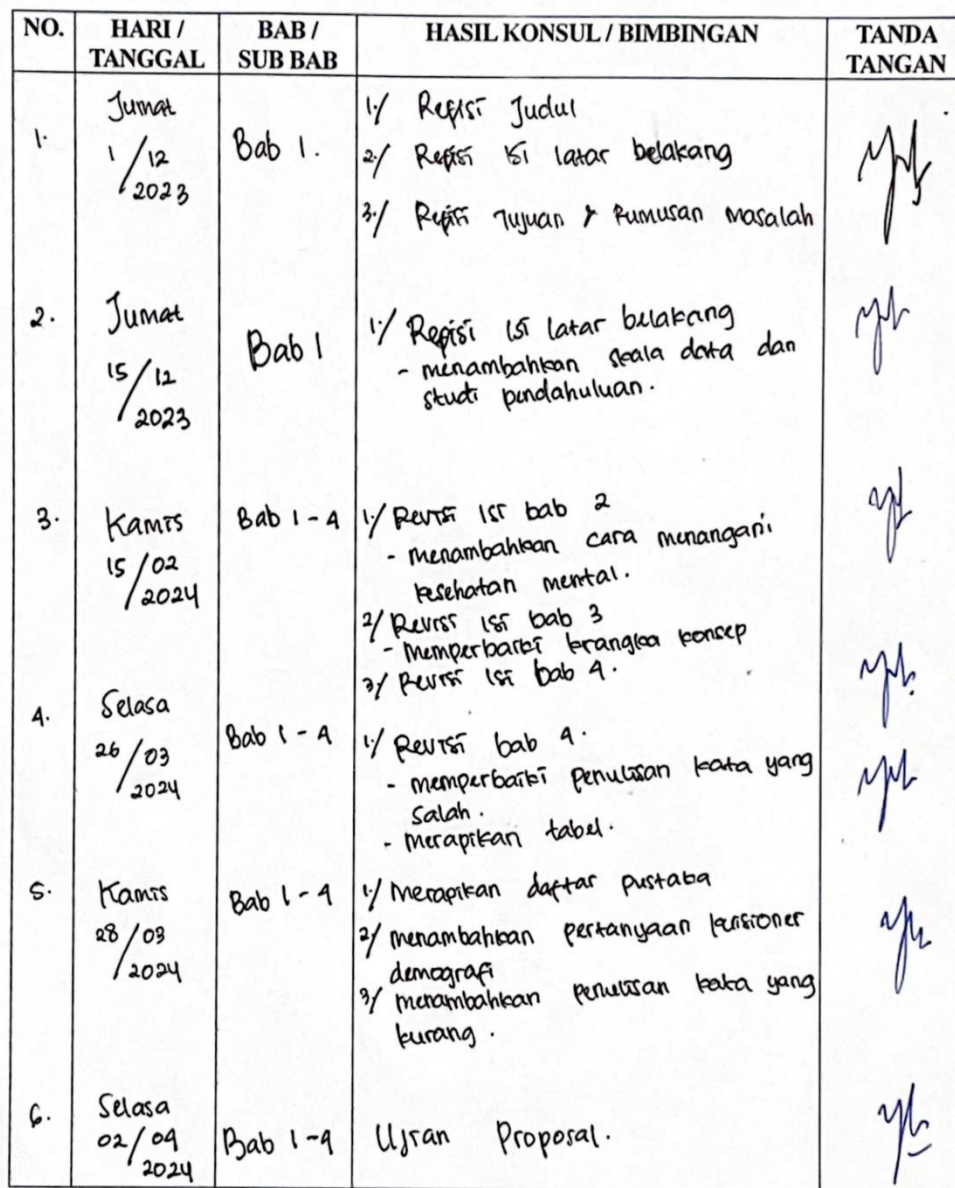 NO. HARI / TANGGAL BAB / SUB BAB HASIL KONSUL / BIMBINGAN TANDA TANGAN
1. Jumat 1/12 2023 Bab 1. 1/ Refisi Judul
2/ Refisi isi latar belakang
3/ Refisi Tujuan & Rumusan Masalah
2. Jumat 15/12 2023 Bab 1 1/ Refisi isi latar belakang
- menambahkan skala data dan
studi pendahuluan.
3. Kamis 15/02 2024 Bab 1 - 4 1/ Revisi isi bab 2
- menambahkan cara menangani
kesehatan mental.
2/ Revisi isi bab 3
- memperbaiki krangka konsep
3/ Revisi isi bab 4.
4. Selasa 26/03 2024 Bab 1 - 4 1/ Revisi bab 4.
- memperbaiki penulisan kata yang
salah.
- merapikan tabel.
5. Kamis 28/03 2024 Bab 1 - 4 1/ Merapikan daftar pustaka
2/ menambahkan pertanyaan kuisioner
demografi
3/ menambahkan penulisan kata yang
kurang.
6. Selasa 02/04 2024 Bab 1 - 4 Ujian Proposal.